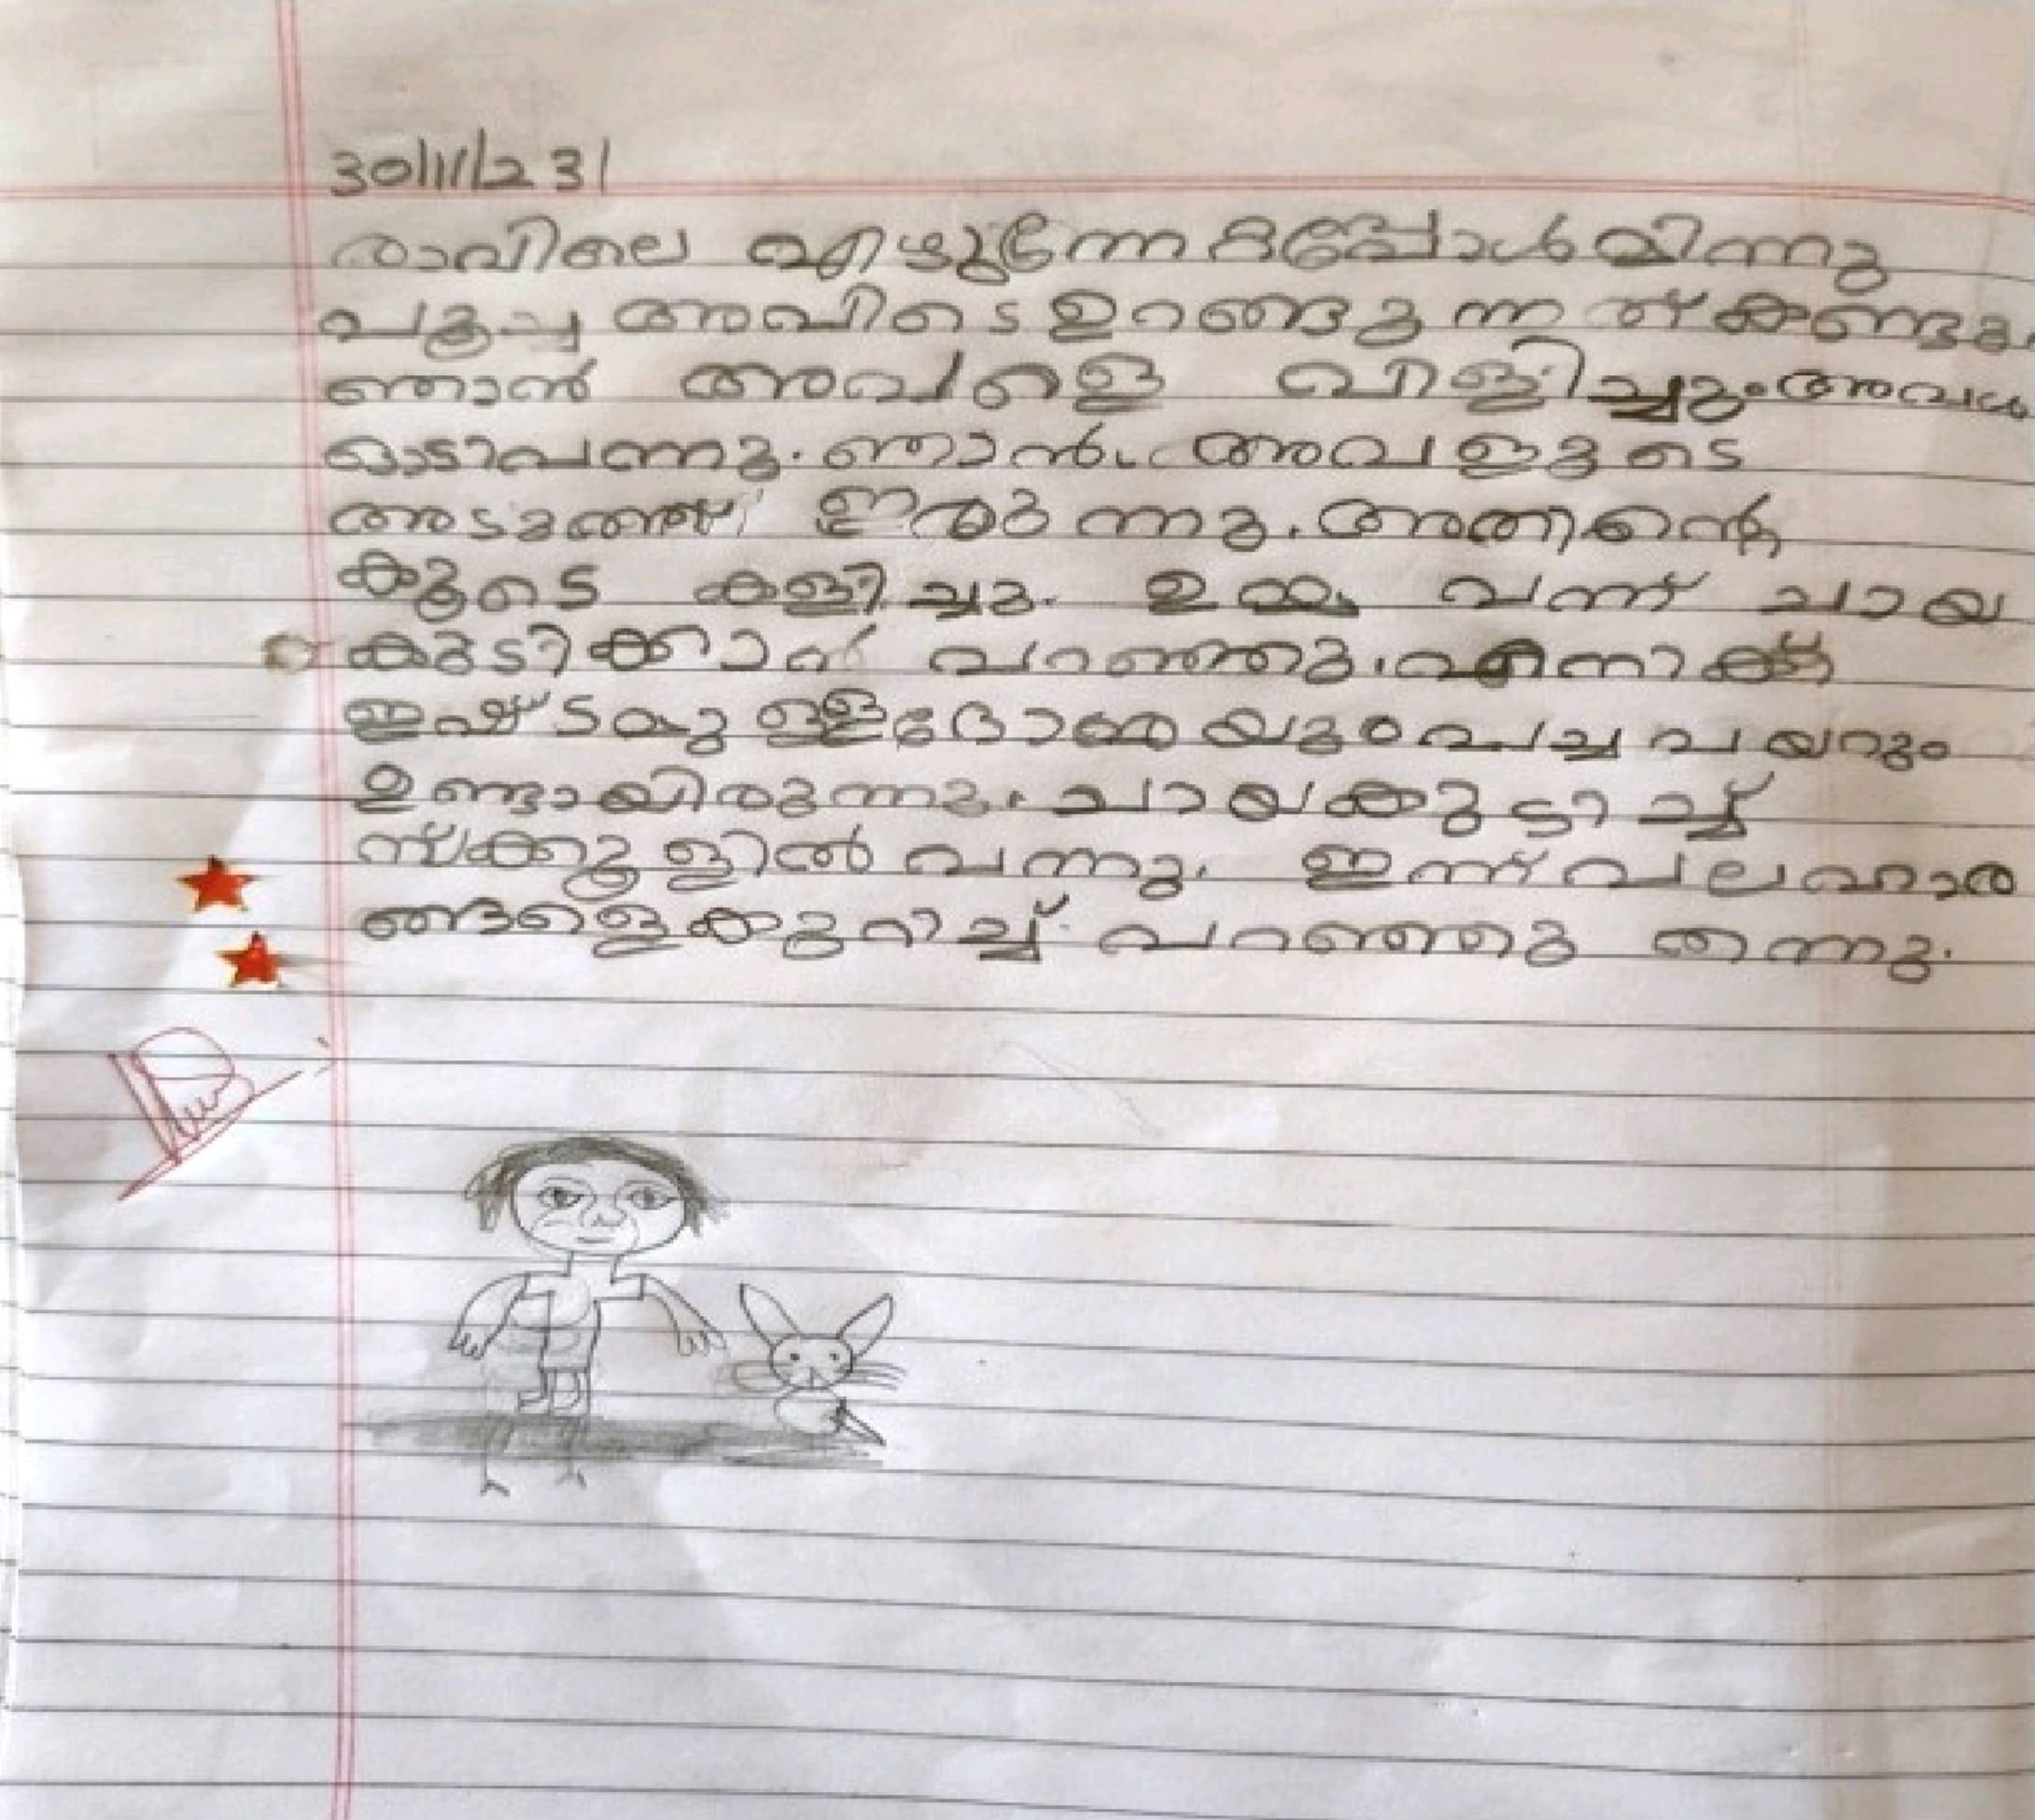 30/11/23/
രാവിലെ എഴുന്നേറ്റപ്പോൾ മിന്നു
പൂച്ച അവിടെ ഉറങ്ങുന്നത് കണ്ടു.
ഞാൻ അവളെ വിളിച്ചു. അവൾ
ഓടിവന്നു. ഞാൻ അവളുടെ
അടുത്ത് ഇരുന്നു. അതിന്റെ
കൂടെ കളിച്ചു. ഉമ്മ വന്ന് ചായ
കുടിക്കാൻ പറഞ്ഞു. എനിക്ക്
ഇഷ്ടമുള്ള ദോശയും പച്ച പയറും
ഉണ്ടായിരുന്നു. ചായകുടിച്ച്
സ്ക്കൂളിൽ വന്നു. ഇന്ന് പലഹാര
ങ്ങളെകുറിച്ച് പറഞ്ഞു തന്നു.